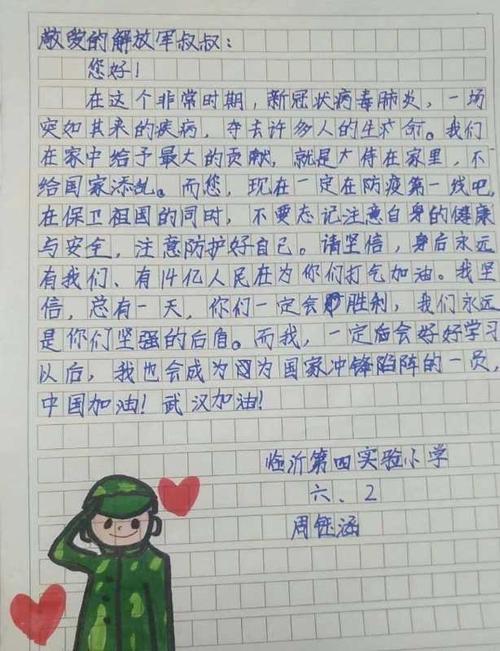 敬爱的解放军叔叔：
您好！
在这个非常时期，新冠状病毒肺炎，一场
突如其来的疾病，夺去许多人的生命。我们
在家中给予最大的贡献，就是待在家里，不
给国家添乱。而您，现在一定在防疫第一线吧
在保卫祖国的同时，不要忘记注意自身的健康
与安全，注意防护好自己。请坚信，身后永远
有我们、有14亿人民在为你们打气加油。我坚
信，总有一天，你们一定会胜利，我们永远
是你们坚强的后盾。而我，一定后会好好学习
以后，我也会成为为国家冲锋陷阵的一员，
中国加油！武汉加油！
临沂第四实验小学
六、2
周钰涵